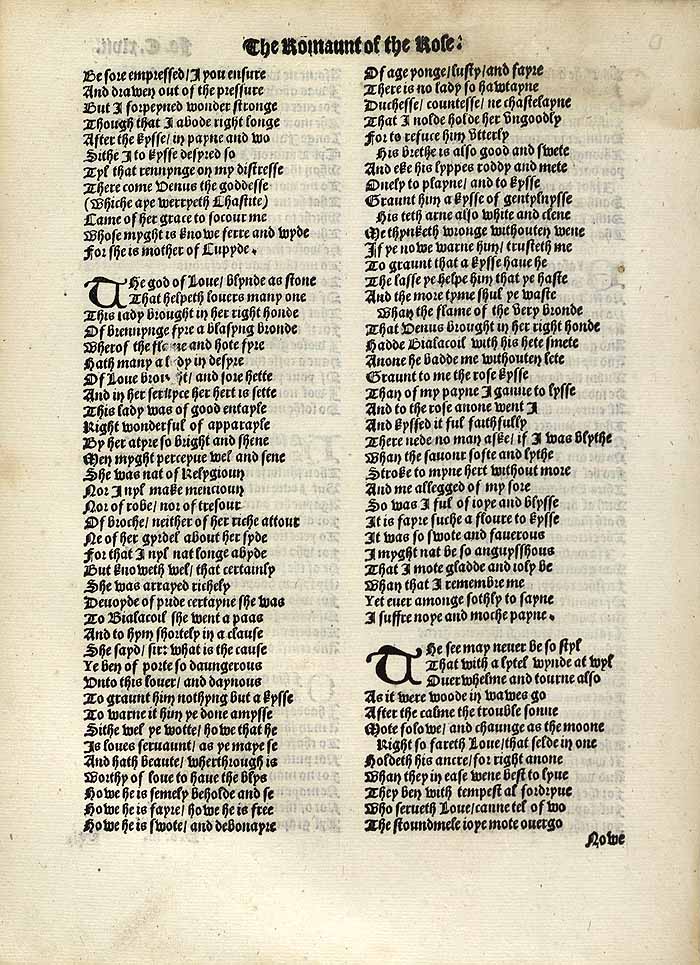 The Romaunt of the Rose:
Be sore empressed/ I you ensure
And drawen out of the pressure
But I forpeyned wonder stronge
Though that I abode right longe
After the kysse/ in payne and wo
Sithe I to kysse desyred so
Tyl that rennynge on my distresse
There come Venus the goddesse
(Whiche aye werryeth Chastite)
Came of her grace to socour me
Whose myght is knowe ferre and wyde
For she is mother of Cupyde.
THe god of Loue/ blynde as stone
That helpeth louers many one
This lady brought in her right honde
Of brennynge fyre a blasyng bronde
Wherof the flame and hote fyre
Hath many a lady in desyre
Of Loue brought/ and sore hette
And in her seruyce her hert is sette
This lady was of good entayle
Right wonderful of apparayle
By her atyre so bright and shene
Men myght perceyue wel and sene
She was nat of Relygioun
Nor I nyl make mencioun
Nor of robe/ nor of tresour
Of broche/ neither of her riche attour
Ne of her gyrdel about her syde
For that I nyl nat longe abyde
But knoweth wel/ that certainly
She was arrayed richely
Deuoyde of pride certayne she was
To Bialacoil she went a paas
And to hym shortely in a clause
She sayd/ sir: what is the cause
Ye ben of porte so daungerous
Unto this louer/ and daynous
To graunt him nothyng but a kysse
To warne it him ye done amysse
Sithe wel ye wotte/ howe that he
Is loues seruaunt/ as ye maye se
And hath beaute/ wherthrough is
Worthy of loue to haue the blys
Howe he is semely beholde and se
Howe he is fayre/ howe he is free
Howe he is swote/ and debonayre
Of age yonge/ lusty/ and fayre
There is no lady so hawtayne
Duchesse/ countesse/ ne chastelayne
That I nolde holde her vngoodly
For to refuce him vtterly
His brethe is also good and swete
And eke his lyppes roddy and mete
Onely to playne/ and to kysse
Graunt him a kysse of gentylnysse
His teth arne also white and clene
Me thynketh wronge withouten wene
If ye nowe warne him/ trusteth me
To graunt that a kysse haue he
The lasse ye helpe him that ye haste
And the more tyme shul ye waste
Whan the flame of the very bronde
That Venus brought in her right honde
Hadde Bialacoil with his hete smete
Anone he badde me withouten lete
Graunt to me the rose kysse
Than of my payne I ganne to lysse
And to the rose anone went I
And kyssed it ful faithfully
There nede no man aske/ if I was blythe
Whan the sauour softe and lythe
Stroke to myne hert without more
And me allegged of my sore
So was I ful of ioye and blysse
It is fayre suche a floure to kysse
It was so swote and sauerous
I myght nat be so anguysshous
That I mote gladde and ioly be
Whan that I remembre me
Yet euer amonge sothly to sayne
I suffre noye and moche payne.
THe see may neuer be so styl
That with a lytel wynde at wyl
Ouerwhelme and tourne also
As it were woode in wawes go
After the calme the trouble sonne
Mote folowe/ and chaunge as the moone
Right so fareth Loue/ that selde in one
Holdeth his ancre/ for right anone
Whan they in ease wene best to lyue
They ben with tempest al fordryue
Who serueth Loue/ canne tel of wo
The stoundmele ioye mote ouergo
Nowe